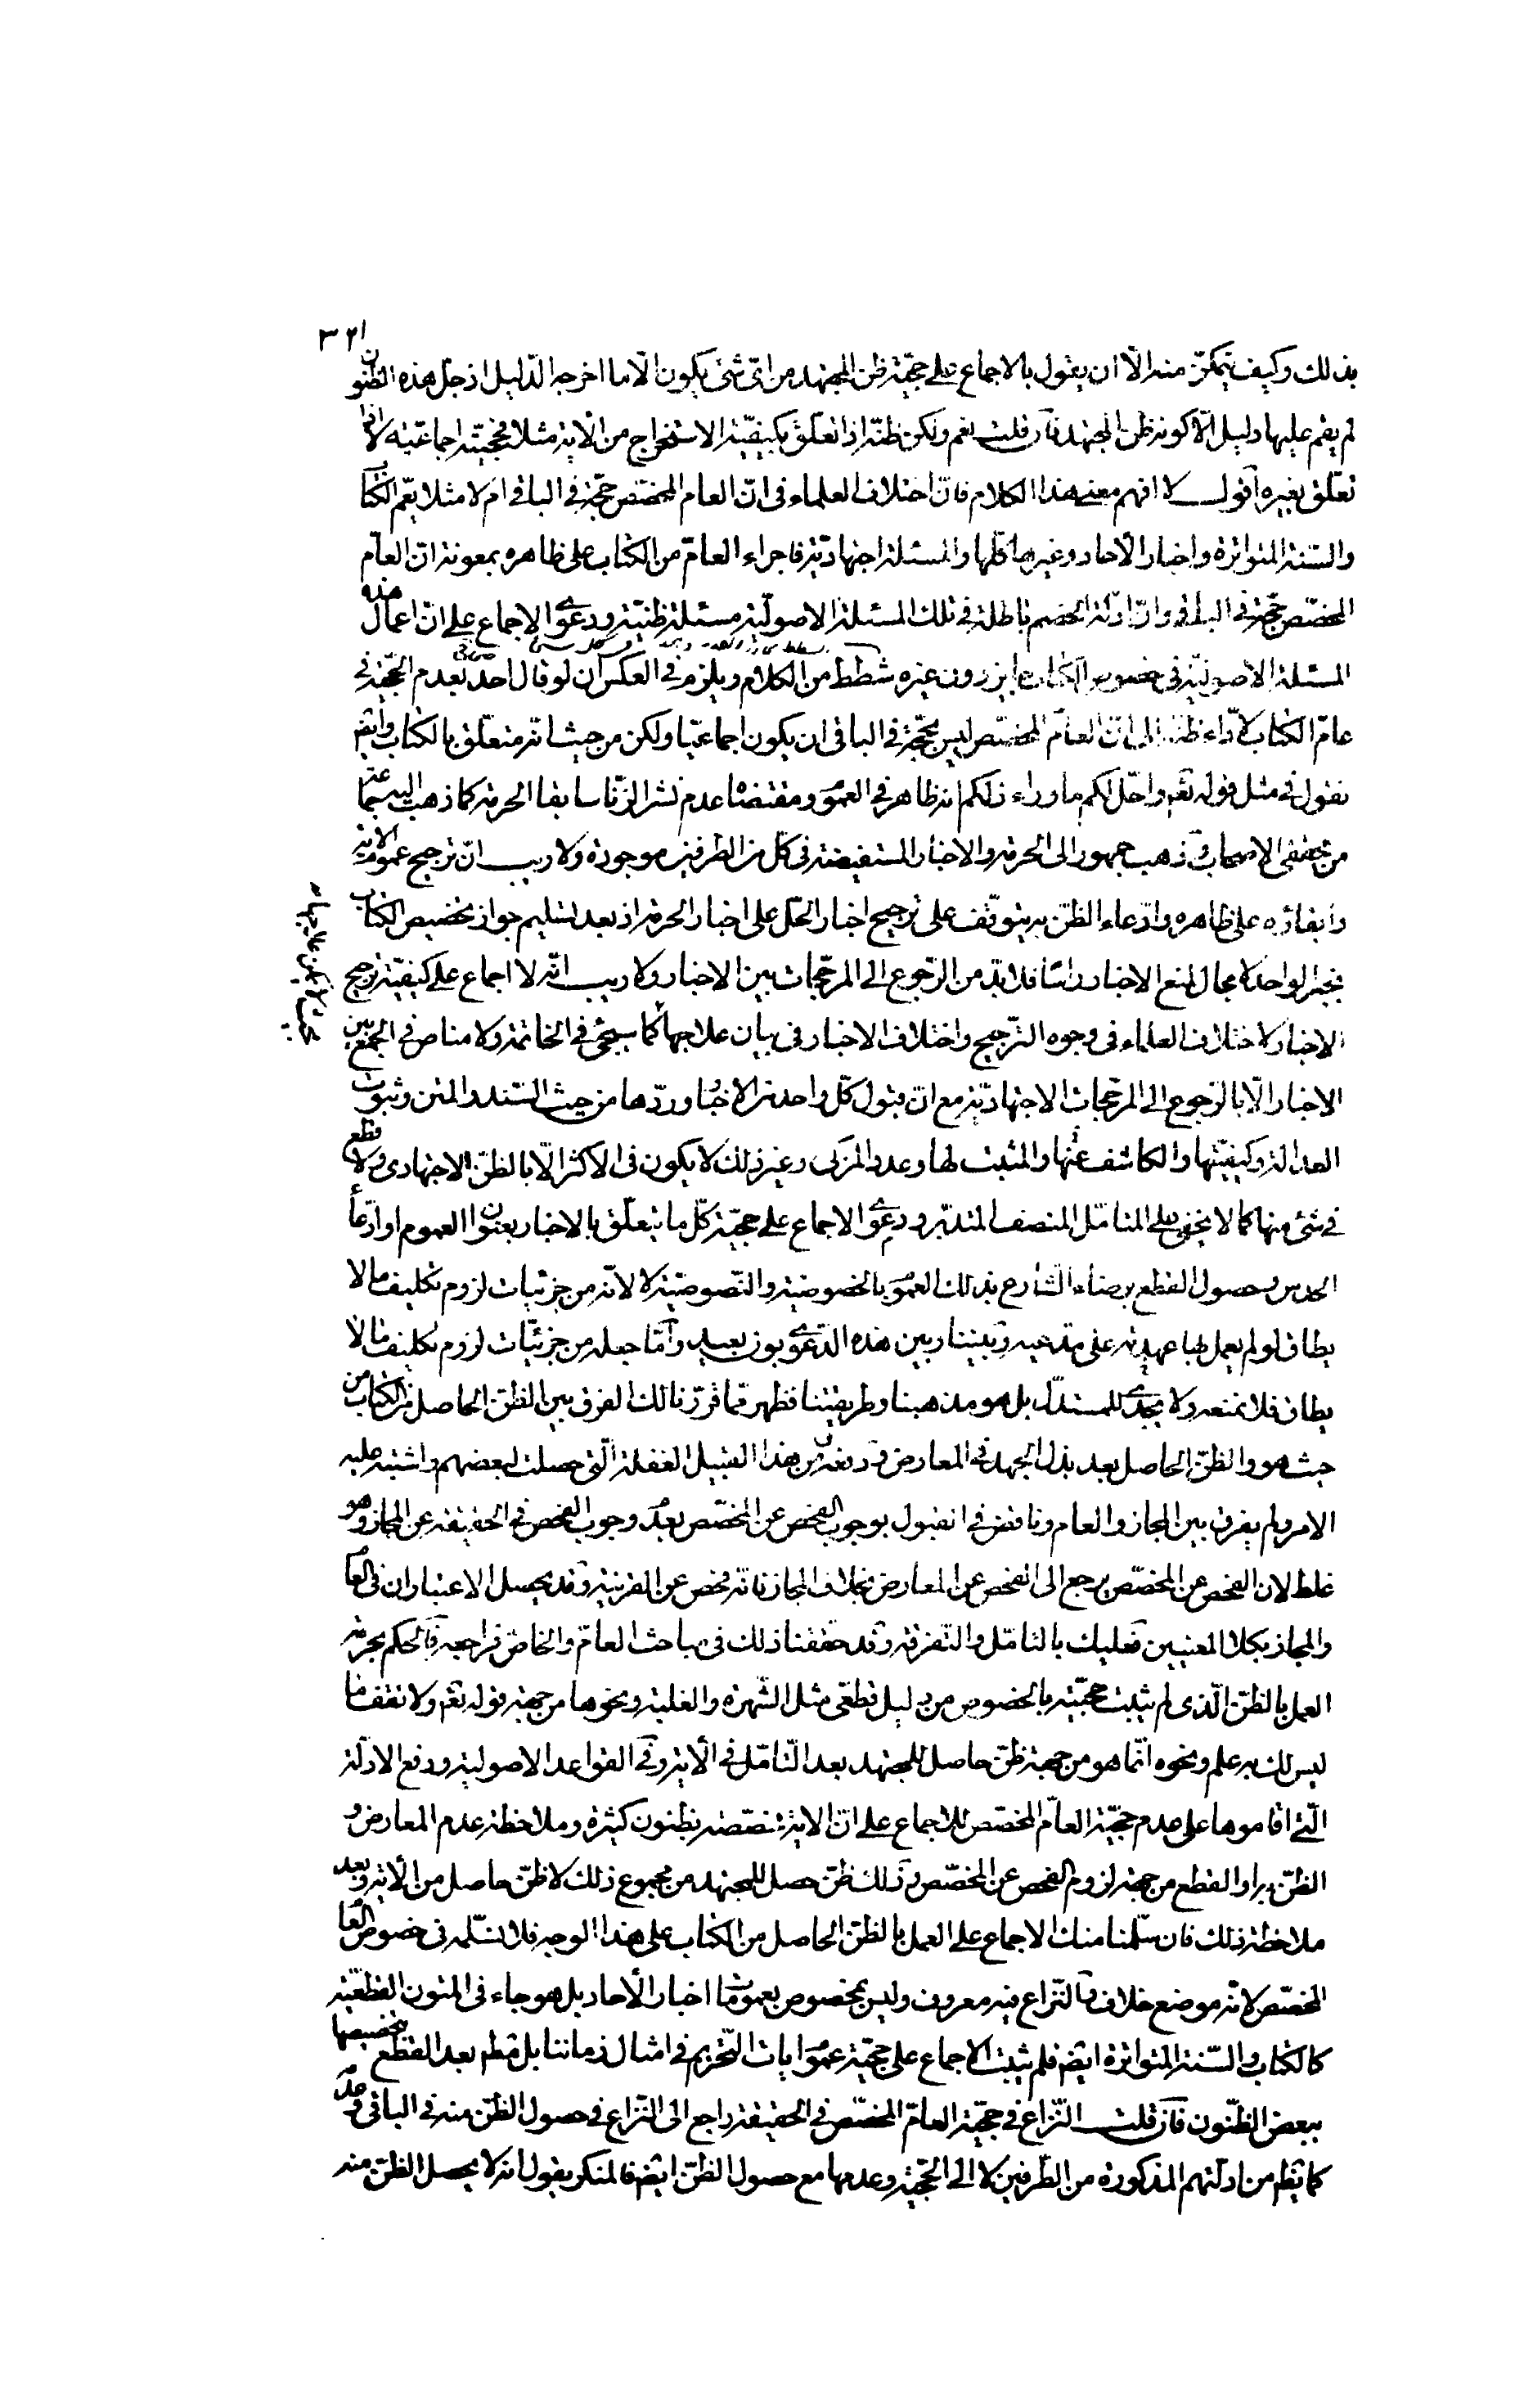 ٣٢١
بذلك وكيف يتمكّن منه الّا ان يقول بالاجماع على حجيّة ظن المجتهد من اىّ شئ يكون الّا ما اخرجه الدّليل اذ جلّ هذه الظنون
لم يقم عليها دليل الّا كونه ظن المجتهد فان قلت نعم ولكن ظنّه اذا تعلّق بكيفيّة الاستخراج من الآية مثلا فحجيّته اجماعيّة لا اذا
تعلّق بغيره اقول لا افهم معنى هذا الكلام فانّ اختلاف العلماء فى انّ العام المخصّص حجّة فى الباقى ام لا مثلا يعّم الكتاب
والسّنة المتواترة واخبار الآحاد وغيرها كلّها والمسئلة اجتهاديّة فاجراء العامّ من الكتاب على ظاهره بمعونة انّ العامّ
المخصّص حجّة فى الباقى وانّ ادلّة الخصم باطلة فى تلك المسئلة الاصوليّة مسئلة ظنيّة ودعوى الاجماع على انّ اعمال هذه
المسئلة الاصوليّة فى خصوص الكتاب جايز دون غيره شطط من الكلام ويلزم فى العكس ان لو قال احد بعدم الحجّية فى
عامّ الكتاب لاداء ظنّه الى انّ العامّ المخصّص ليس بحجّة فى الباقى ان يكون اجماعيّا ولكن من حيث انّه متعلّق بالكتاب وايضم
نقول فى مثل قوله تعم واحلّ لكم ما وراء ذلكم انه ظاهر فى العموم ومقتضاه عدم نشر الزّنا سابقا الحرمة كما ذهب اليه جماعة
من محققى الاصحاب وذهب جمهور الى الحرمة والاخبار المستفيضة فى كل من الطرفين موجودة ولا ريب انّ ترجيح عموم الاية
وابقاؤه على ظاهره وادّعاء الظنّ به يتوقّف على ترجيح اخبار الحلّ على اخبار الحرمة اذ بعد تسليم جواز تخصيص الكتاب
بخبر الواحد لا مجال لمنع الاخبار راسًا فلا بدّ من الرّجوع الى المرجّحات بين الاخبار ولا ريب انّه لا اجماع على كيفيّة ترجيح
الاخبار لاختلاف العلماء فى وجوه التّرجيح واختلاف الاخبار فى بيان علاجها كما سيجئ فى الخاتمة ولا مناص فى الجمع بين
الاخبار الّا بالرّجوع الى المرجّحات الاجتهاديّة مع انّ قبول كلّ واحد من الاخبار وردّها من حيث السّند والمتن وثبوت
العدالة وكيفيّتها والكاشف عنها والمثبت لها وعدد المزكى وغير ذلك لا يكون فى الاكثر الّا بالظنّ الاجتهادى ولا قطع
فى شئ منها كما لا يخفى على المتامّل المنصف المتدبّر ودعوى الاجماع على حجيّة كلّ ما يتعلّق بالاخبار بعنوان العموم او ادّعاء
الحدس وحصول القطع برضاء الشّارع بذلك العموم بالخصوصيّة والنّصوصيّة لا لانّه من جزئيات لزوم تكليف ما لا
يطاق لو لم يعمل بها عهدته على مدّعيه وبيننا وبين هذه الدّعوى بون بعيد وامّا جعله من جزئيّات لزوم تكليف ما لا
يطاق فلا نمنعه ولا يجدى للمستدلّ بل هو مذهبنا وطريقتنا فظهر ممّا قرّرنا لك الفرق بين الظنّ الحاصل من الكتاب من
حيث هو والظنّ الحاصل بعد بذل الجهد فى المعارض ودفعه ومن هذا القبيل الغفلة الّتى حصلت لبعضهم واشتبه عليه
الامر ولم يفرق بين المجاز والعام وناقض فى القول بوجوب الفحص عن المخصّص بعدم وجوب الفحص فى الحقيقة عن المجاز وهو
غلط لان الفحص عن المخصّص يرجع الى الفحص عن المعارض بخلاف المجاز فانّه فحص عن القرينة وقد يحصل الاعتباران فى العام
والمجاز بكلا المعنيين فعليك بالتامّل والتّفرقة وقد حققنا ذلك فى مباحث العامّ والخاصّ فراجعه فالحكم بحرمة
العمل بالظنّ الّذى لم يثبت حجيّته بالخصوص من دليل قطعىّ مثل الشّهرة والغلبة ونحوها من جهة قوله تعم ولا تقف ما
ليس لك به علم ونحوه انّما هو من جهة ظنّ حاصل للمجتهد بعد التّامّل فى الآية وفى القواعد الاصولية ودفع الادلّة
الّتى اقاموها على عدم حجيّة العامّ المخصّص للاجماع على انّ الاية مخصّصة بظنون كثيرة وملاحظة عدم المعارض و
الظنّ به او القطع من جهة لزوم الفحص عن المخصّص وذلك ظنّ حصل للمجتهد من مجموع ذلك لا ظنّ حاصل من الآية وبعد
ملاحظة ذلك فان سلّمنا منك الاجماع على العمل بالظنّ الحاصل من الكتاب على هذا الوجه فلا نسلّمه فى خصوص العام
المخصّص لانّه موضع خلاف فالنّزاع فيه معروف وليس بمخصوص بعمومات اخبار الآحاد بل هو جاء فى المتون القطعيّة
كالكتاب والسّنة المتواترة ايضم فلم يثبت الاجماع على حجيّة عموم ايات التّحريم فى امثال زماننا بل قطم بعد القطع بتخصيصها
ببعض الظّنون فان قلت النّزاع فى حجيّة العامّ المخصّص فى الحقيقة راجع الى النّزاع فى حصول الظنّ منه فى الباقى وعدمه
كما يظهر من ادلّتهم المذكورة من الطّرفين لا الى الحجّية وعدمها مع حصول الظنّ ايضم فالمنكر يقول انه لا يحصل الظنّ منه